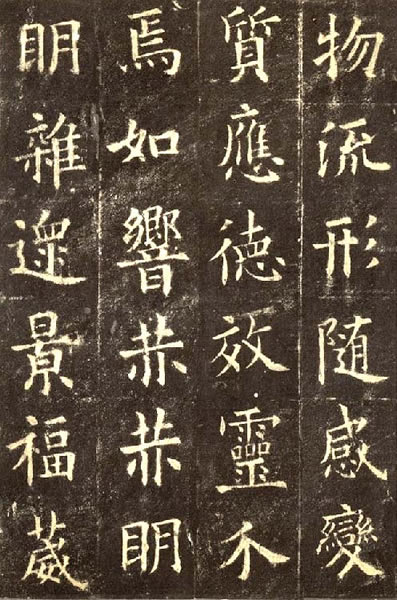 物流形随感變
質應徳效靈不
焉如響赫赫眀
眀雜遝景福葳